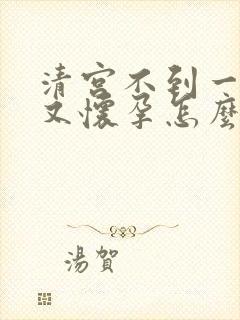 清宫不到一
又懷孕怎麼
湯賀